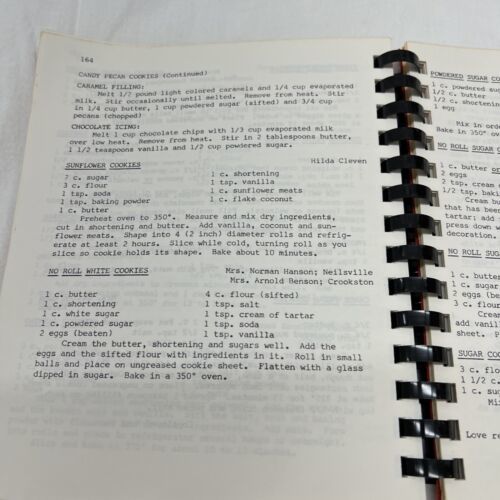 164
CANDY PECAN COOKIES (Continued)
CARAMEL FILLING:
Melt 1/2 pound light colored caramels and 1/4 cup evaporated
milk. Stir occasionally until melted. Remove from heat. Stir
in 1/4 cup butter, 1 cup powdered sugar (sifted) and 3/4 cup
pecans (chopped)
CHOCOLATE ICING:
Melt 1 cup chocolate chips with 1/3 cup evaporated milk
over low heat. Remove from heat. Stir in 2 tablespoons butter,
1 1/2 teaspoons vanilla and 1/2 cup powdered sugar.
Hilda Cleven
SUNFLOWER COOKIES
c. sugar 1 c. shortening
3 c. flour 1 tsp. vanilla
1 tsp. soda 1 c. sunflower meats
1 tsp. baking powder 1 c. flake coconut
1 c. butter
Preheat oven to 350°. Measure and mix dry ingredients,
cut in shortening and butter. Add vanilla, coconut and sun-
flower meats. Shape into 4 (2 inch) diameter rolls and refrig-
erate at least 2 hours. Slice while cold, turning roll as you
slice so cookie holds its shape. Bake about 10 minutes.
NO ROLL WHITE COOKIES Mrs. Norman Hanson; Neilsville
Mrs. Arnold Benson; Crookston
1 c. butter 4 c. flour (sifted)
1 c. shortening 1 tsp. salt
1 c. white sugar 1 tsp. cream of tartar
1 c. powdered sugar 1 tsp. soda
2 eggs (beaten) 1 tsp. vanilla
Cream the butter, shortening and sugars well. Add the
eggs and the sifted flour with ingredients in it. Roll in small
balls and place on ungreased cookie sheet. Flatten with a glass
dipped in sugar. Bake in a 350° oven.
POWDERED SUGAR
1 c. powdered
1/2 c. butter
1/2 c. shortening
1 egg
Mix in
Bake in 350°
NO ROLL SUGAR
1 c. butter
2 eggs
2 tsp. cream
1/2 tsp.
Cream
that has
tartar; add
press down
decoration.
NO ROLL SUGAR
1 c. butter
1 c. sugar
2 eggs
3 c.
Cream
add
sheet.
SUGAR
3 c.
1 1/2 c.
1 c.
Love